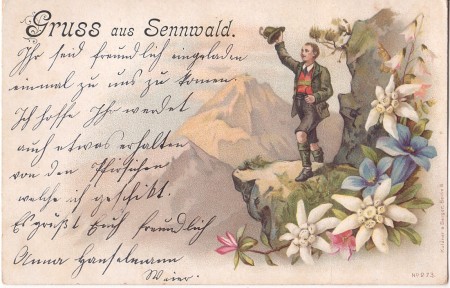 Gruss aus Sennwald.
Ihr seid freundlich eingeladen
einmal zu uns zu komen.
Ich hoffe Ihr werdet
auch etwas erhalten
von den Pfirsichen
welche ich geschikt.
Es grüßt Euch freundlich
Anna Hanselmann
Meier.
No 273